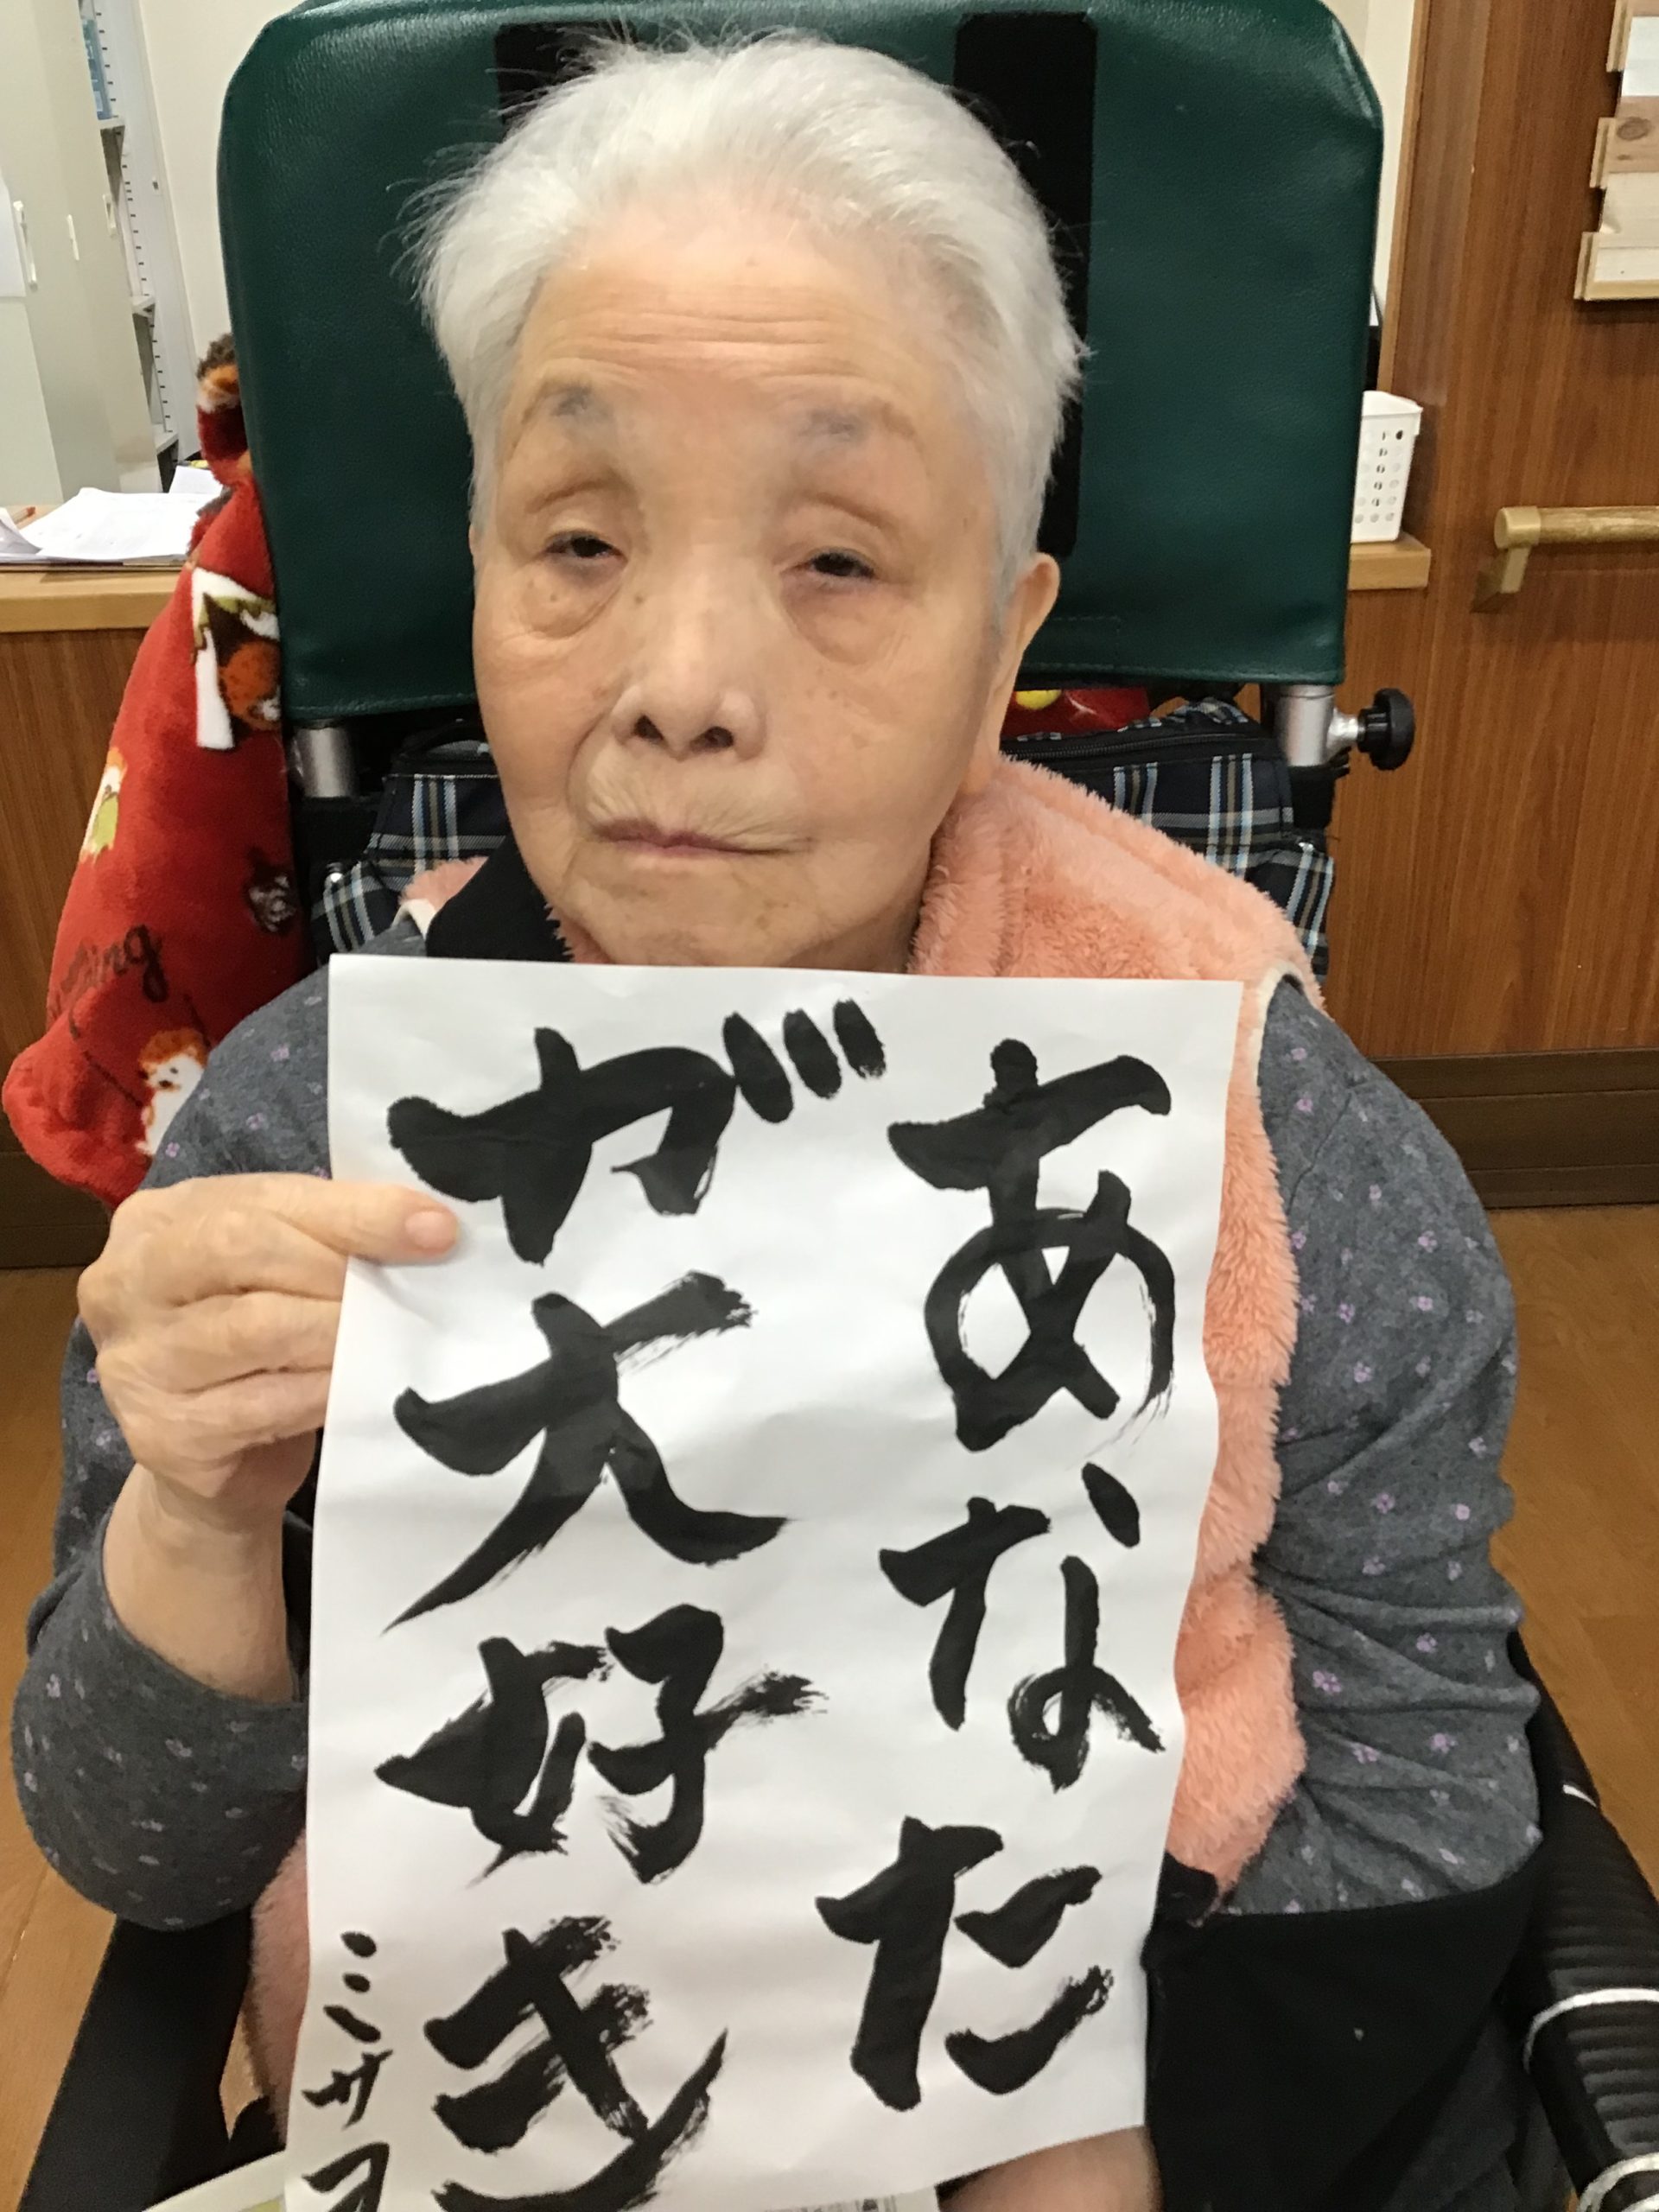 あなた
が大好き
ミサヲ